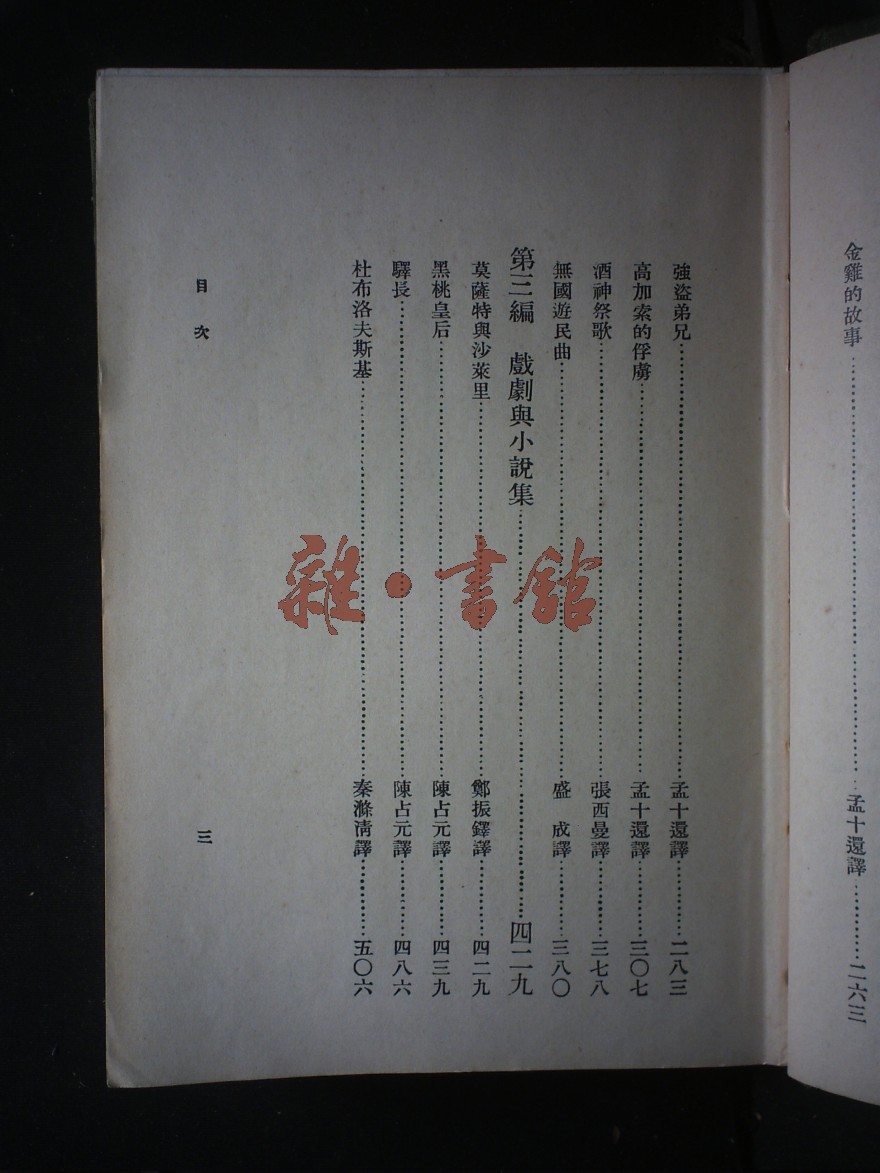 金雞的故事…………孟十還譯…………二六三
強盜弟兄…………孟十還譯…………二八三
高加索的俘虜…………孟十還譯…………三〇七
酒神祭歌…………張西曼譯…………三七八
無國遊民曲…………盛 成譯…………三八〇
第三編 戲劇與小說集…………四二九
莫薩特與沙萊里…………鄭振鐸譯…………四二九
黑桃皇后…………陳占元譯…………四三九
驛長…………陳占元譯…………四八六
杜布洛夫斯基…………秦滌清譯…………五〇六
目次
三
雜·書館